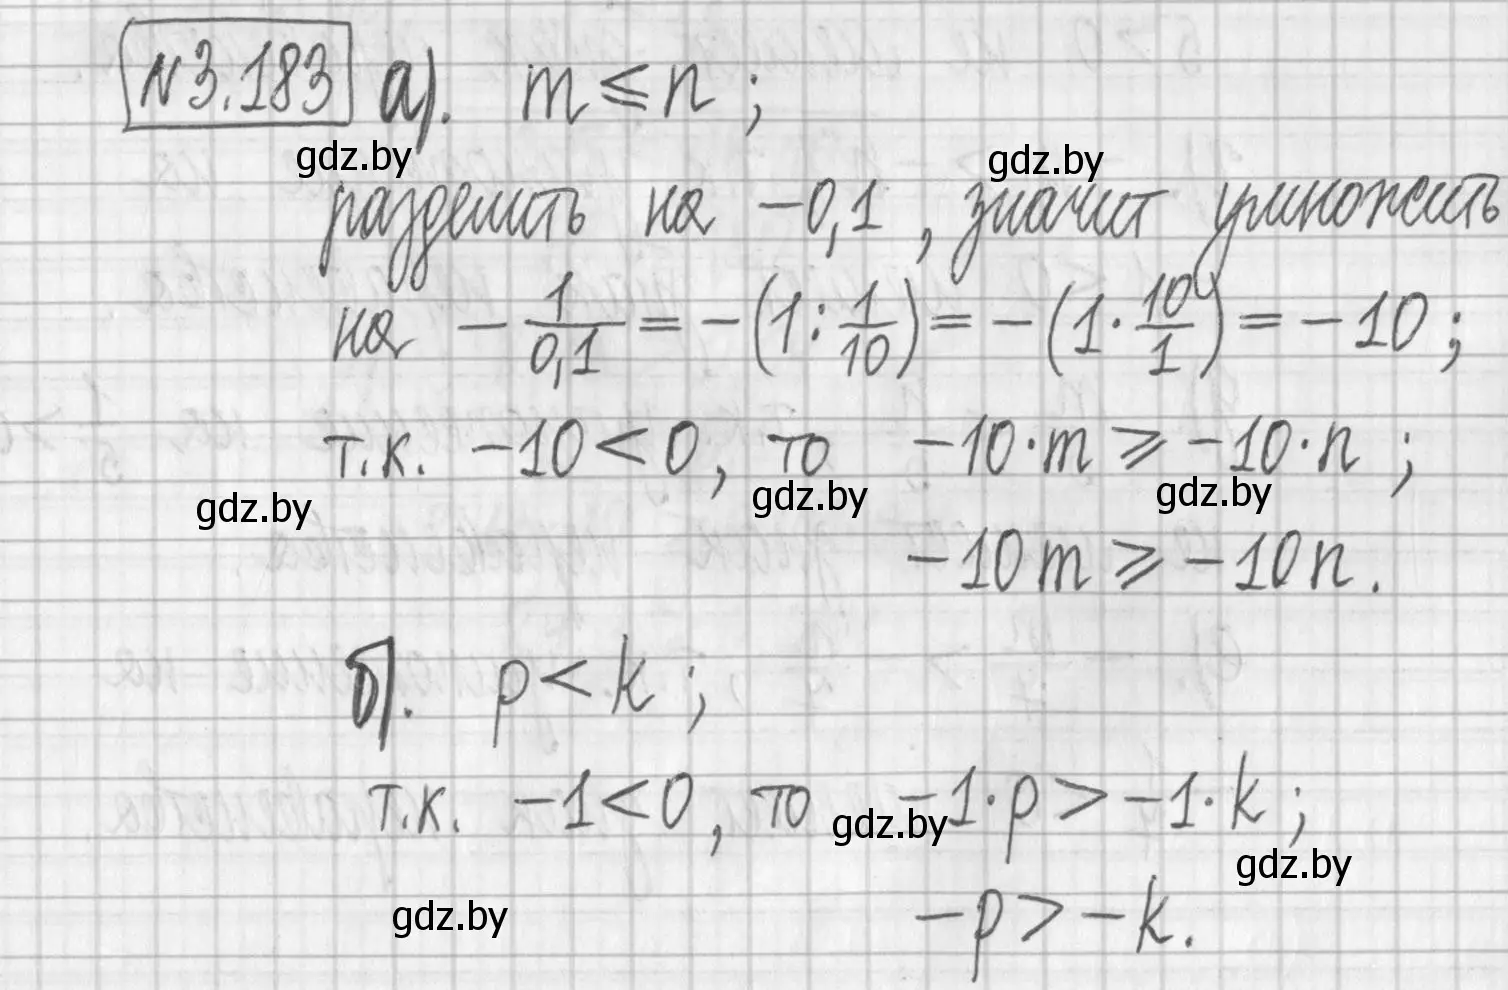 №3.183 а). m ⩽ n ;
gdz.by gdz.by
разделить на −0,1 , значит умножить
на − 1/0,1 = −(1 : 1/10) = −(1 · 10/1) = −10 ;
т.к. −10 < 0 , то −10·m ⩾ −10·n ;
gdz.by gdz.by gdz.by
−10m ⩾ −10n .
б). p < k ;
т.к. −1 < 0 , то −1·p > −1·k ;
gdz.by gdz.by
gdz.by −p > −k .